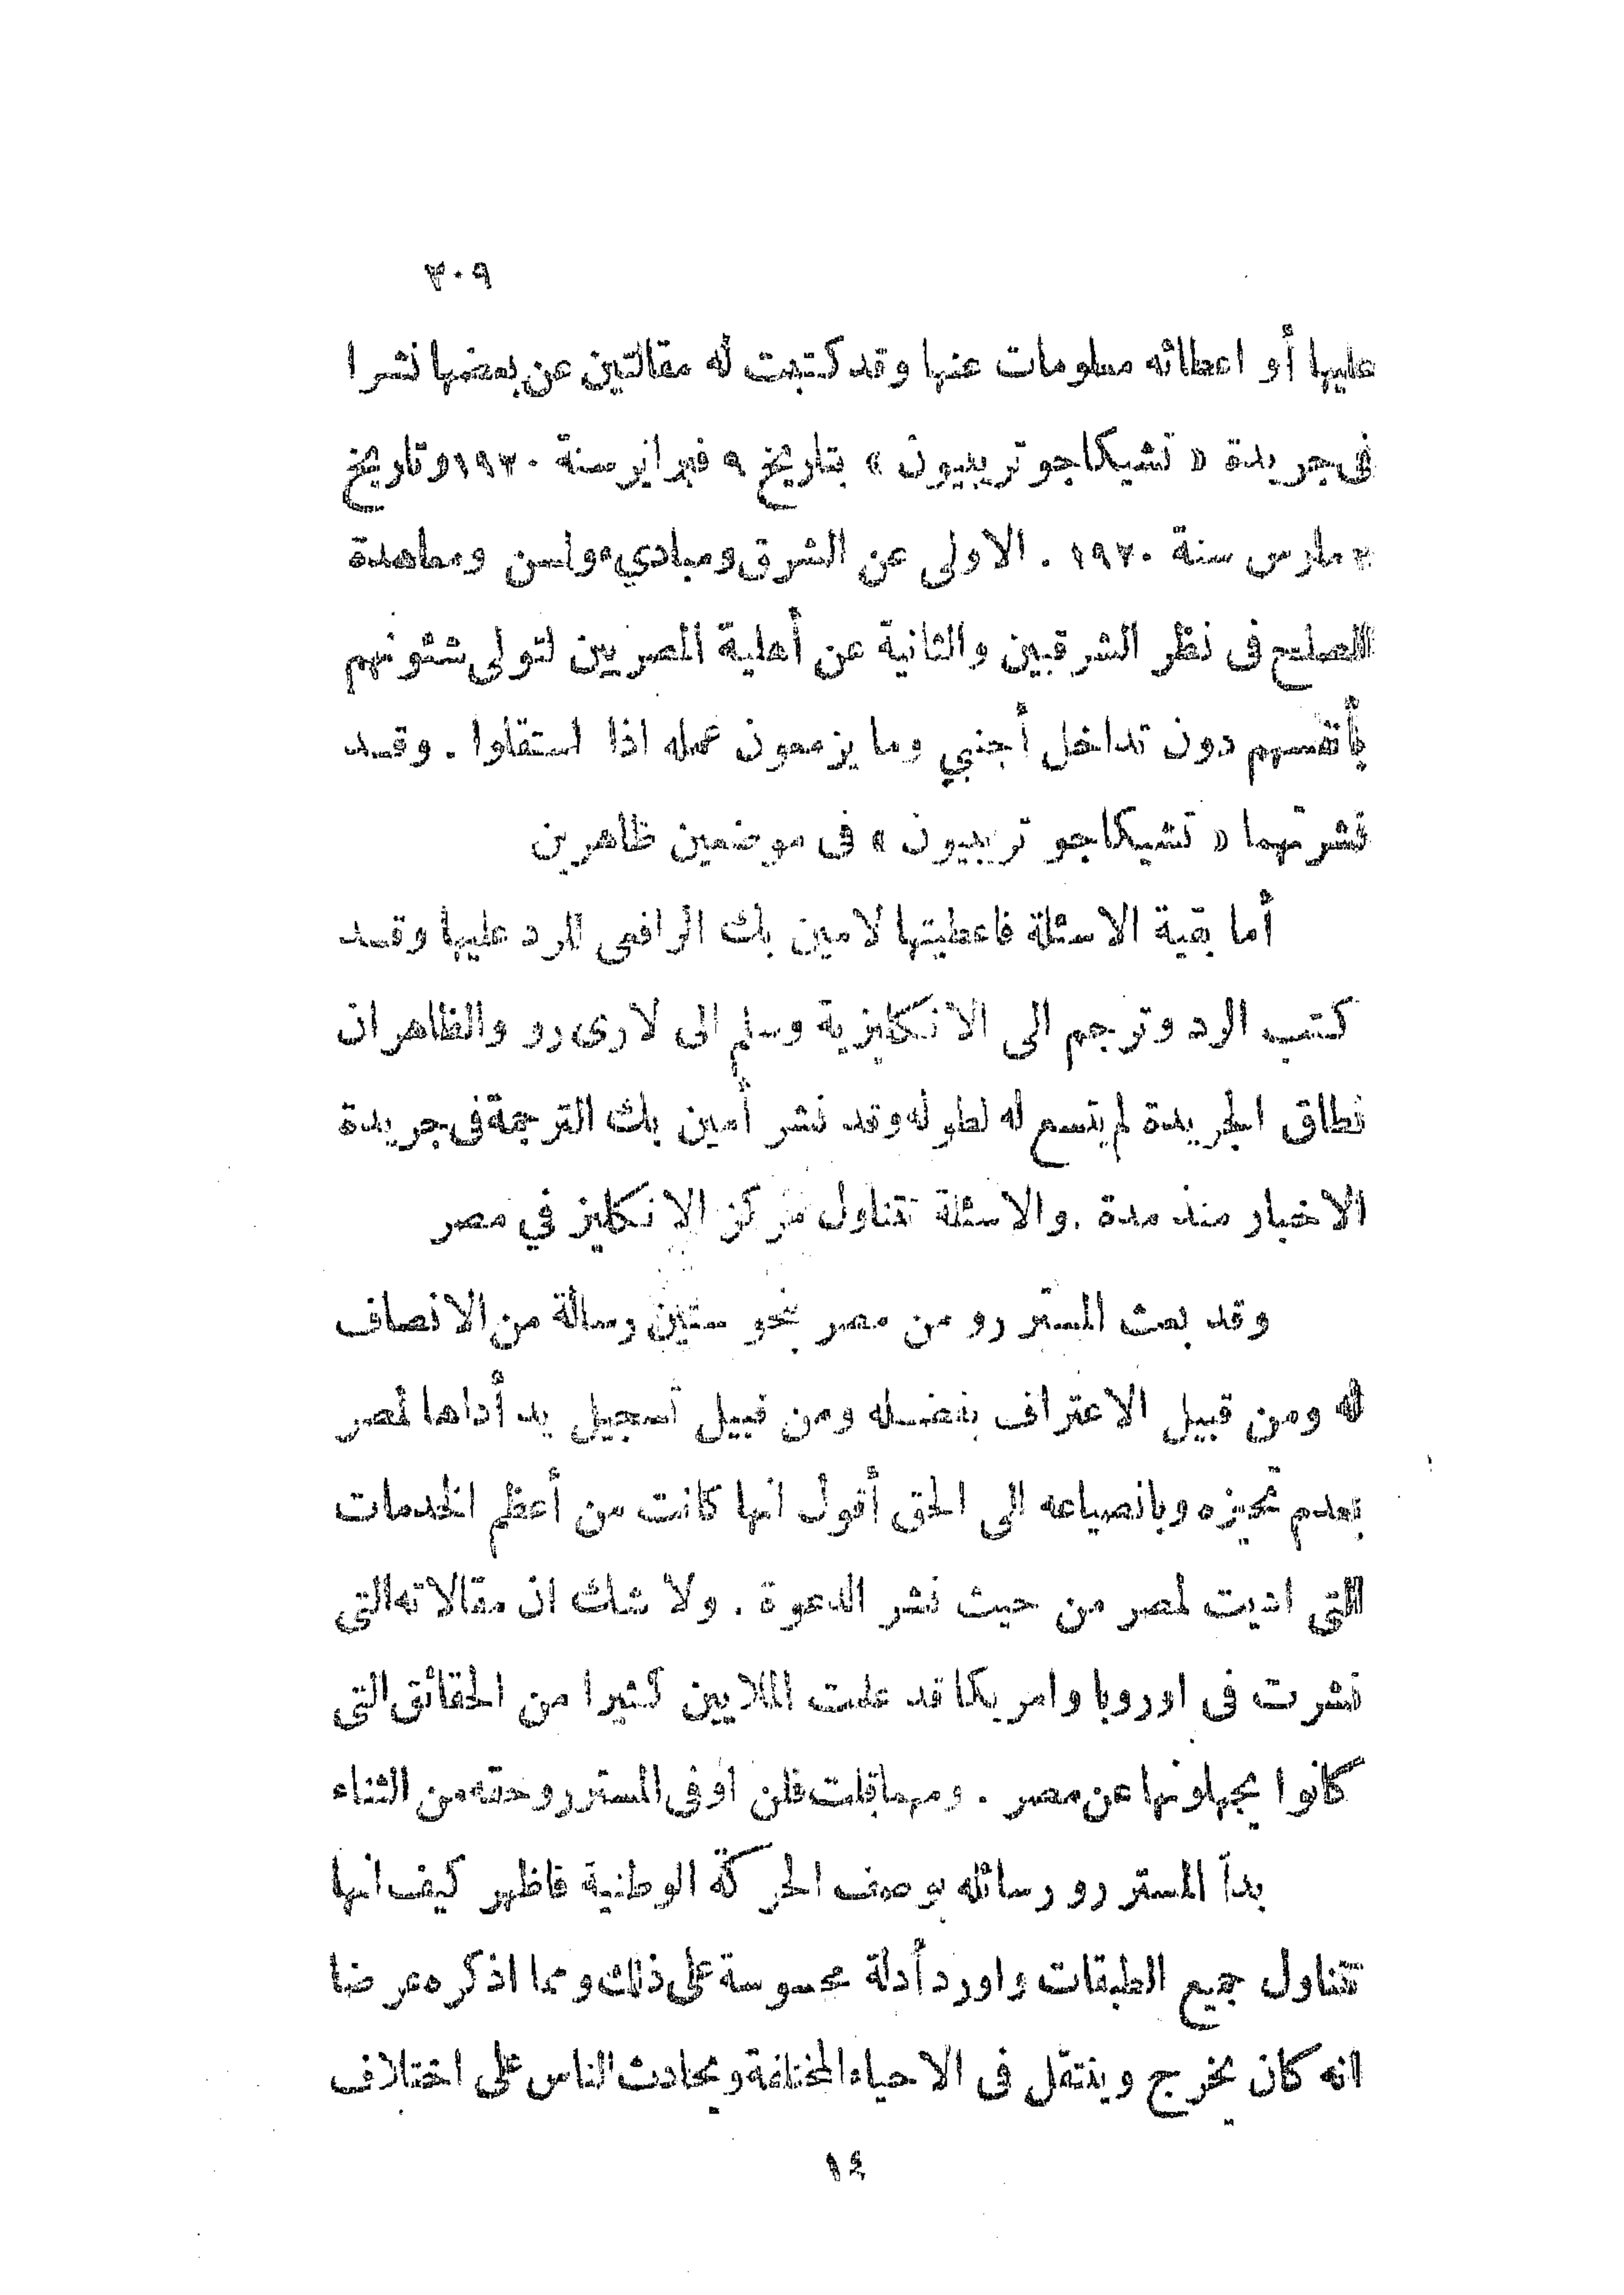 ٣٠٩
عليها أو اعطائه معلومات عنها وقد كتبت له مقالتين عن بعضها نشرا
فى جريدة « تشيكاجو تريبيون » بتاريخ ٩ فبراير سنة ١٩٢٠ وتاريخ
مارس سنة ١٩٢٠ . الاولى عن الشرق ومبادىء ولسن ومعاهدة
الصلح فى نظر الشرقيين والثانية عن أهلية المصريين لتولى شئونهم
بأنفسهم دون تداخل أجنبي وما يزمعون عمله اذا استقلوا . وقد
نشرتهما « تشيكاجو تريبيون » فى موضعين ظاهرين
أما بقية الاسئلة فاعطيتها لامين بك الرافعى للرد عليها وقد
كتب الرد وترجم الى الانكليزية وسلم الى لارى رو والظاهر ان
نطاق الجريدة لم يتسع له لطوله وقد نشر أمين بك الترجمة فى جريدة
الاخبار منذ مدة . والاسئلة تتناول مركز الانكليز في مصر
وقد بعث المستر رو من مصر نحو ستين رسالة من الانصاف
له ومن قبيل الاعتراف بفضله ومن قبيل تسجيل يد أداها لمصر
بعدم تحيزه وبانصياعه الى الحق أقول انها كانت من أعظم الخدمات
التى اديت لمصر من حيث نشر الدعوة . ولا شك ان مقالاته التى
نشرت فى اوروبا وامريكا قد علمت الملايين كثيرا من الحقائق التى
كانوا يجهلونها عن مصر . ومهما قلت فلن اوفى المستر رو حقه من الثناء
بدأ المستر رو رسائله بوصف الحركة الوطنية فاظهر كيف انها
تتناول جميع الطبقات واورد أدلة محسوسة على ذلك ومما اذكره عرضا
انه كان يخرج وينتقل فى الاحياء المختلفة ويحادث الناس على اختلاف
١٤